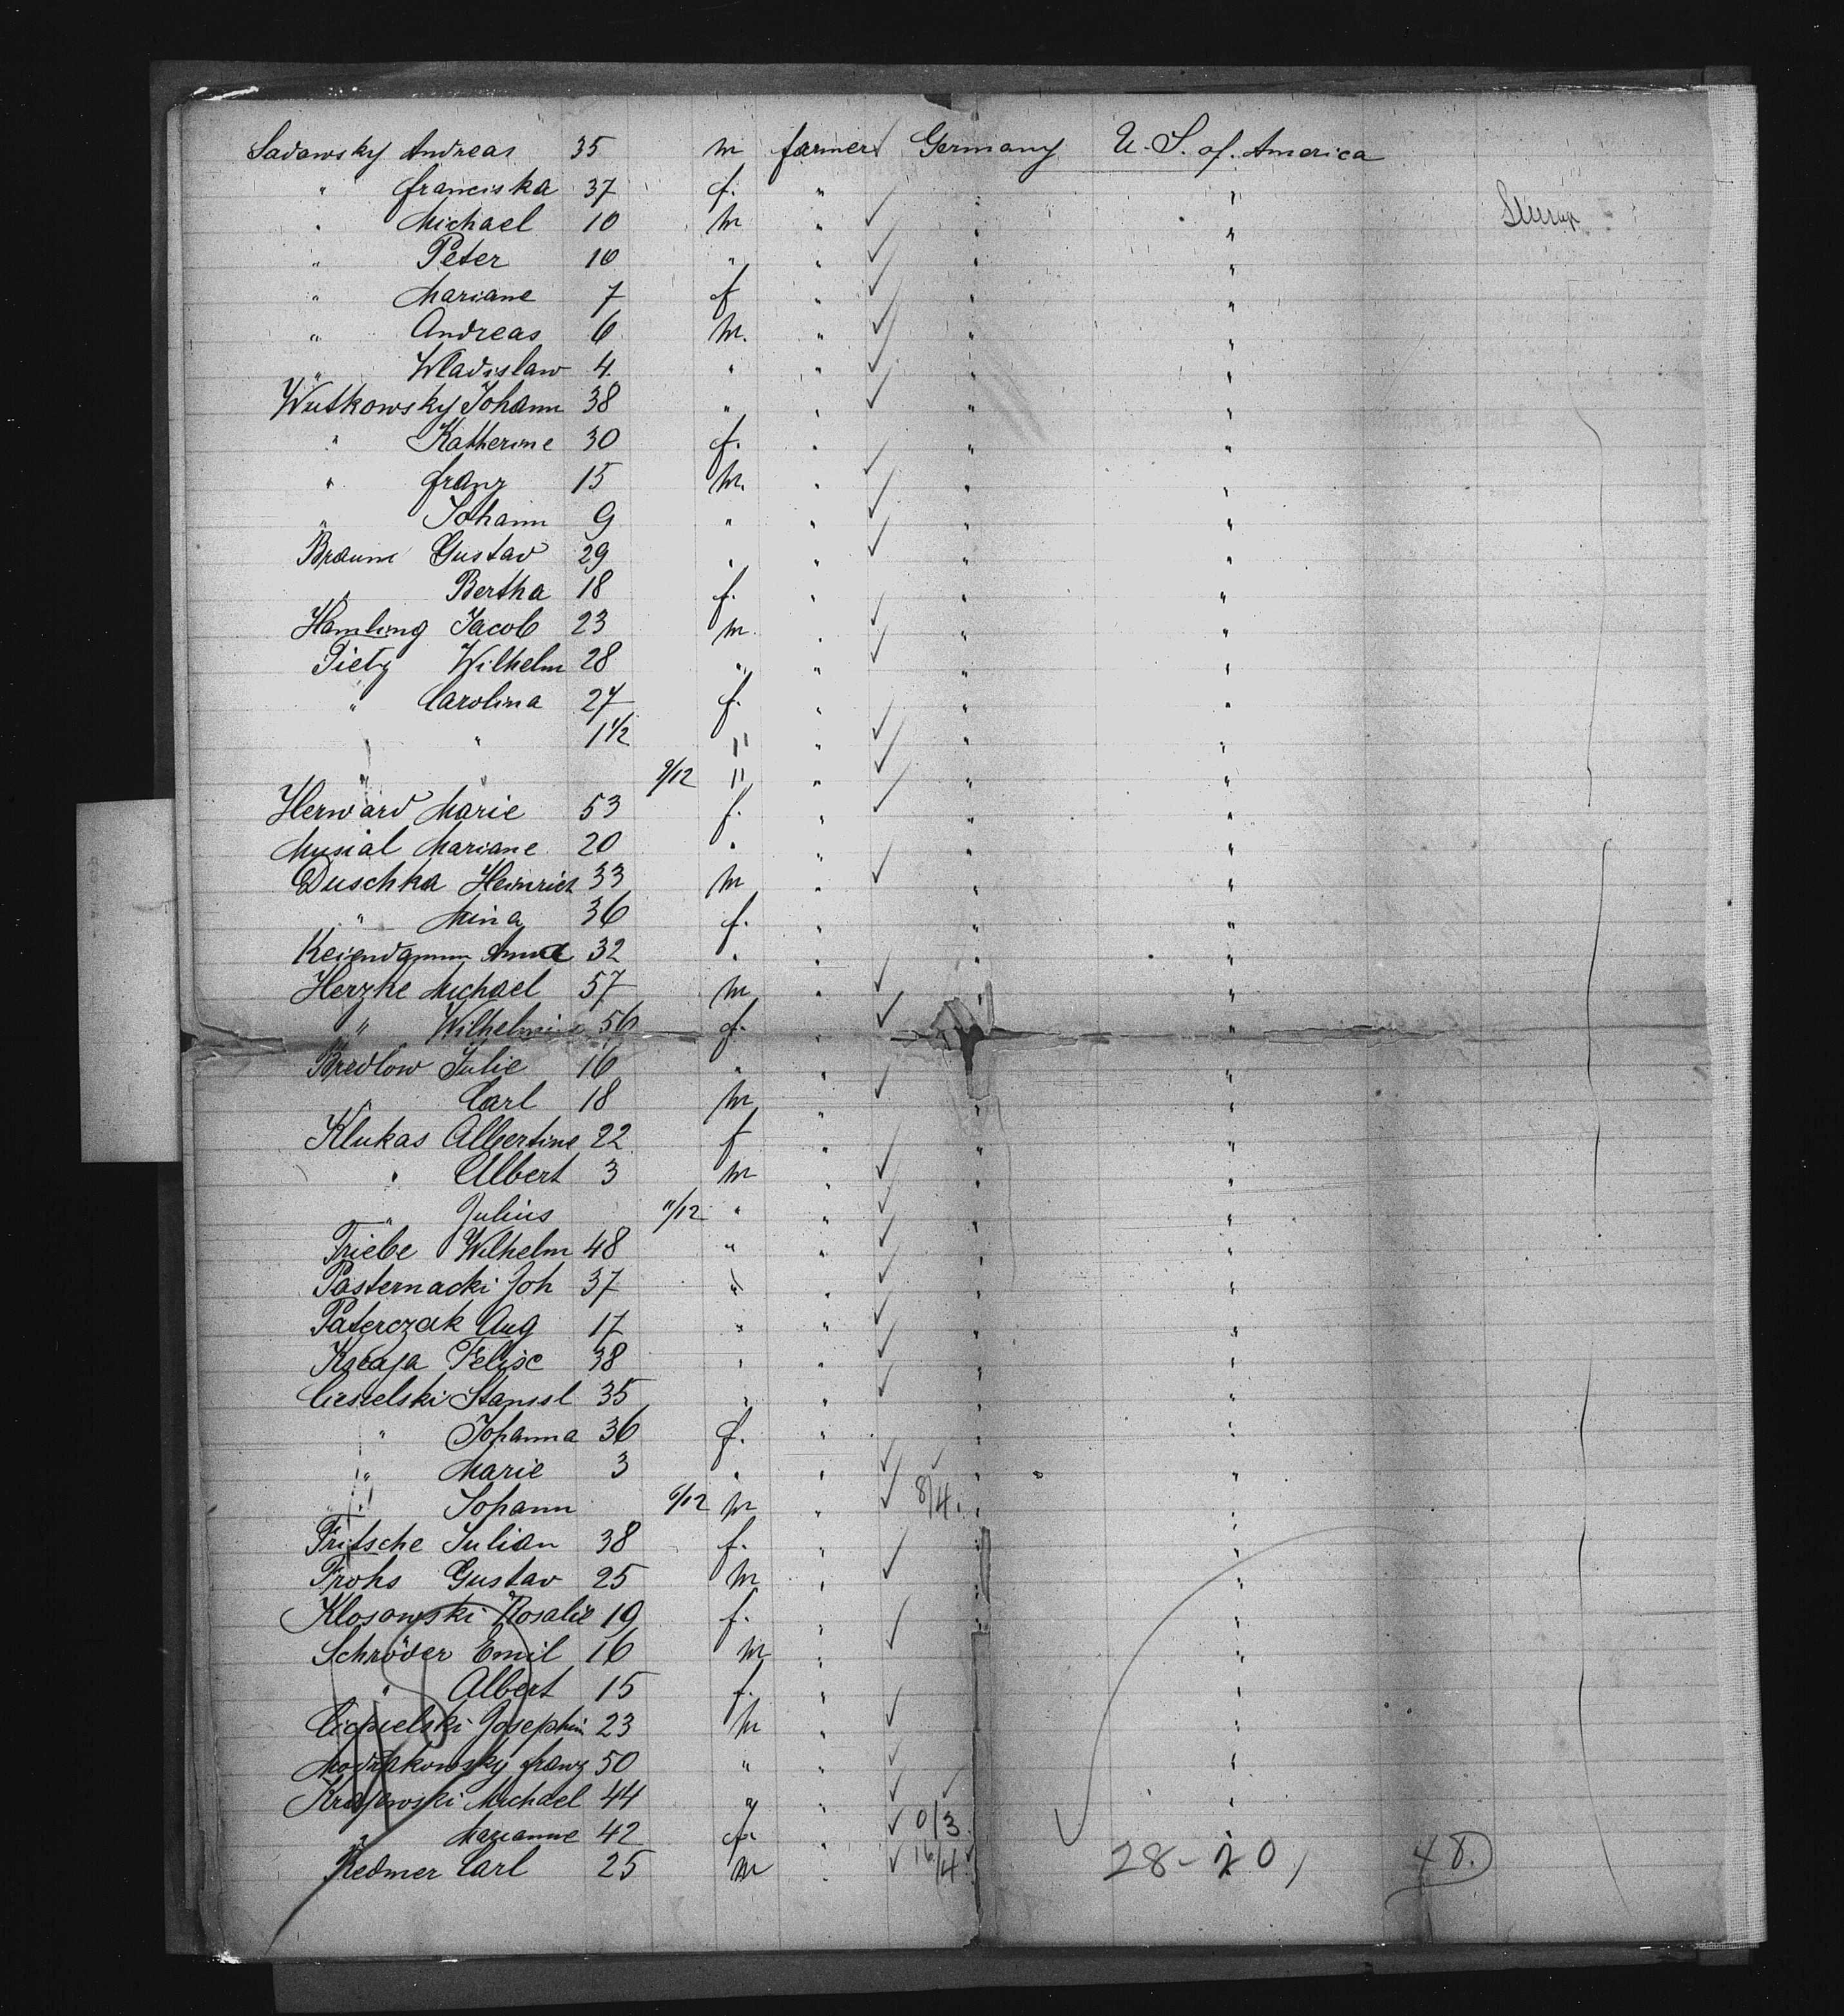 Sadowsky Andreas 35 m farmer ✓ Germany U. S. of. America
" Franciska 37 f. " "
" Michael 10 m " ✓ " "
" Peter 10 " " ✓ " "
" Mariane 7 f " ✓ " "
" Andreas 6 m. " ✓ " "
" Wladislaw 4 " " ✓ " "
Wutkowsky Johann 38 " " ✓ " "
" Katherine 30 f. " " "
" Franz 15 m. " ✓ " "
" Johann 9 " " ✓ " "
Braun Gustav 29 " " ✓ " "
" Bertha 18 f. " " "
Hamling Jacob 23 m " ✓ " "
Pietz Wilhelm 28 " " ✓ " "
" Carolina 27 f. " " "
" " 1½ " " ✓ " "
" " 9/12 " " ✓ " "
Herward Marie 53 f. " ✓ " "
Musial Mariane 20 " " " "
Duschka Heinrich 33 m " ✓ " "
" Mina 36 f. " " "
Anna 32 " " " "
Herzke Michael 57 m " ✓ " "
" Wilhelmine 56 f. " ✓ "
Bredlow Julie 16 " " "
" Carl 18 m " ✓ " "
Klukas Albertine 22 f " " "
" Albert 3 m " ✓ " "
" Julius 11/12 " " ✓ " "
Triebe Wilhelm 48 " " ✓ " "
Pasternacki Joh 37 " " ✓ " "
Paterczak Aug 17 " " ✓ " "
Felise 38 " " ✓ " "
Ciesielski Stanisl 35 " " ✓ " "
" Johanna 36 f. " " "
" Marie 3 " " ✓ ✓ " "
" Johann 6/12 m " ✓ 8/4. " "
Fritsche Julian 38 f. " " "
Frohs Gustav 25 m " ✓ " "
Klosowski Rosalie 19 f. " "
Schröder Emil 16 m " ✓ "
" Albert 15 f. " "
Josephin 23 m " ✓ "
Franz 50 " " ✓ "
Krajewski Michael 44 " " ✓ ✓ "
" Marianne 42 f. " ✓ 0/3. "
Redmer Carl 25 m " ✓ 16/4 ✓ 28-20, 48.